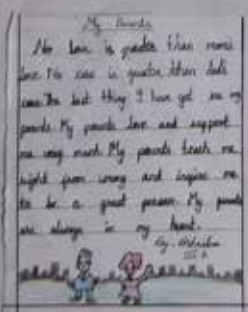 My Parents
No love is greater than mom's
love. No care is greater than dad's
care. The best thing I have got are my
parents. My parents love and support
me very much. My parents teach me
right from wrong and inspire me
to be a great person. My parents
are always in my heart.
By-
III A